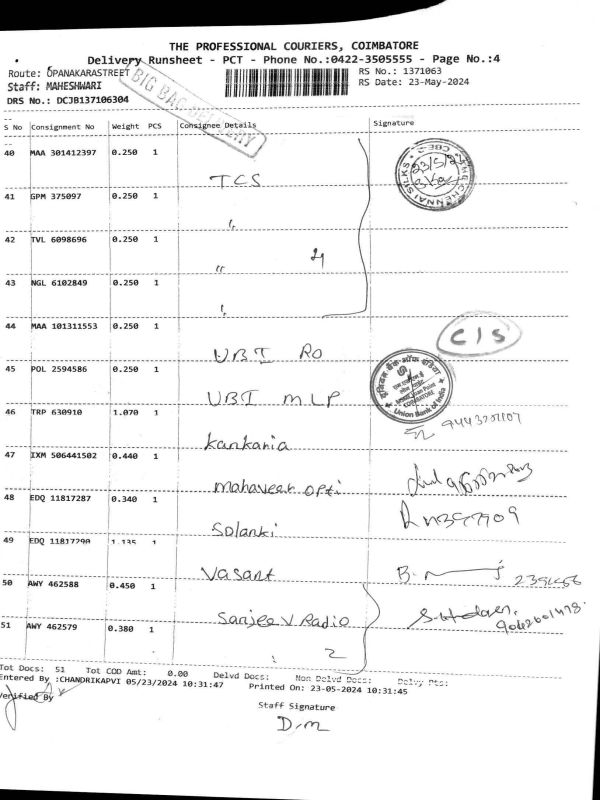 THE PROFESSIONAL COURIERS, COIMBATORE
Delivery Runsheet - PCT - Phone No.:0422-3505555 - Page No.:4
Route: OPANAKARASTREET RS No.: 1371063
Staff: MAHESHWARI RS Date: 23-May-2024
DRS No.: DCJB137106304
BIG BAG DELIVERY
S No Consignment No Weight PCS Consignee Details Signature
40 MAA 301412397 0.250 1 TCS
THE CHENNAI SILKS CBE 23/5/24
41 GPM 375097 0.250 1 "
42 TVL 6098696 0.250 1 " 4
43 NGL 6102849 0.250 1 "
44 MAA 101311553 0.250 1 UBI RO C/S
45 POL 2594586 0.250 1 UBI MLP
यूनियन बैंक ऑफ इंडिया
COIMBATORE
Union Bank of India
46 TRP 630910 1.070 1 Kankania
47 IXM 506441502 0.440 1 Mahaveer opti
48 EDQ 11817287 0.340 1 Solanki
49 EDQ 11817290 1.135 1 Vasant
50 AWY 462588 0.450 1 Sanjeev Radio
51 AWY 462579 0.380 1 2
Tot Docs: 51 Tot COD Amt: 0.00 Delvd Docs: Non Delvd Docs: Delvy Pts:
Entered By :CHANDRIKAPVI 05/23/2024 10:31:47 Printed On: 23-05-2024 10:31:45
Verified By
Staff Signature
D.M